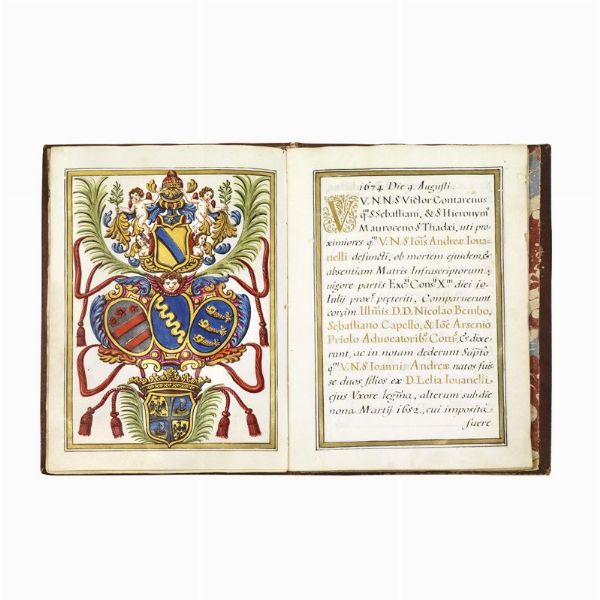 1674 Die 9. Augusti.
V. N. N. s Victor Contarenus
qm s Sebastiani, & s Hieronym9
Mauroceno s Thadæi, uti pro-
ximiores qm V. N. s Iois Andreæ Ioua-
nelli defuncti, ob mortem ejusdem, &
absentiam Matris Infrascriptorum,
uigore partis Excsi Consij Xm diei io
Iulij proxi præteriti, Comparuerunt
corãm Illmis D.D. Nicolao Bembo,
Sebastiano Capello, & Ioē Arsenio
Priolo Aduocatorib9 Comis, & dixe-
runt, ac in notam dederunt Supto
qm V. N. s Ioanni Andreæ natos fuis-
se duos filios ex D. Lelia Iouanelli
ejus Vxore legma, alterum sub die
nona Martij 1652, cui imposità
fuere